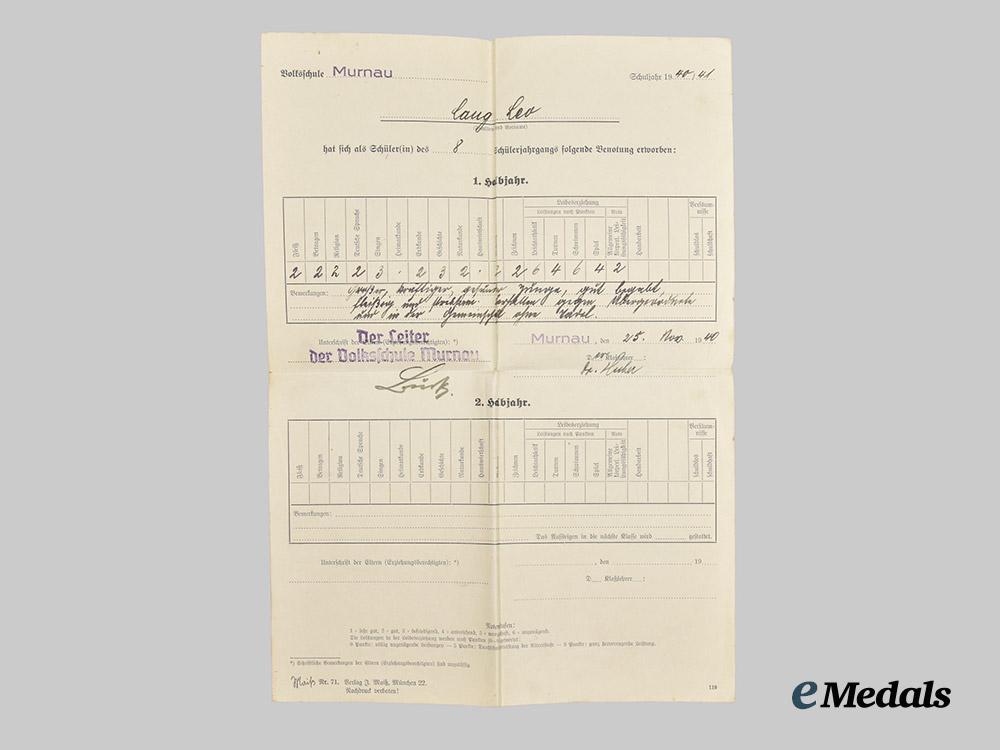 Volksschule Murnau
Schuljahr 1940/41
Lang Leo
(Zu- und Vorname)
hat sich als Schüler(in) des 8 Schülerjahrgangs folgende Benotung erworben:
1. Halbjahr.
Fleiß Betragen Religion Deutsche Sprache Singen Heimatkunde Erdkunde Geschichte Naturkunde Hauswirtschaft Zeichnen Leibeserziehung Leistungen nach Punkten Leichtathletik Turnen Schwimmen Spiel Note Allgemeine körperl. Leistungsfähigkeit Handarbeit Versäumnisse schuldlos schuldhaft
2 2 2 2 3 - 2 3 2 - 2 2 6 4 6 4 2
Bemerkungen: Großer, kräftiger, gesunder Junge, gut begabt,
fleißig und strebsam. Verhalten gegen Vorgesetzte
und in der Gemeinschaft ohne Tadel.
Unterschrift der Eltern (Erziehungsberechtigten): *)
Der Leiter
der Volksschule Murnau
Murnau, den 25. Nov. 1940
Der Klaßlehrer:
Fr. Huber
2. Halbjahr.
Fleiß Betragen Religion Deutsche Sprache Singen Heimatkunde Erdkunde Geschichte Naturkunde Hauswirtschaft Zeichnen Leibeserziehung Leistungen nach Punkten Leichtathletik Turnen Schwimmen Spiel Note Allgemeine körperl. Leistungsfähigkeit Handarbeit Versäumnisse schuldlos schuldhaft
Bemerkungen:
Das Aufsteigen in die nächste Klasse wird gestattet.
Unterschrift der Eltern (Erziehungsberechtigten): *)
, den 19
D Klaßlehrer :
Notenstufen:
1 = sehr gut, 2 = gut, 3 = befriedigend, 4 = ausreichend, 5 = mangelhaft, 6 = ungenügend.
Die Leistungen in der Leibeserziehung werden nach Punkten gewertet:
0 Punkte: völlig ungenügende Leistungen — 5 Punkte: Durchschnittsleistung der Altersstufe — 9 Punkte: ganz hervorragende Leistung.
*) Schriftliche Bemerkungen der Eltern (Erziehungsberechtigten) sind unzulässig.
Maiß Nr. 71. Verlag J. Maiß, München 22.
Nachdruck verboten!
110
eMedals